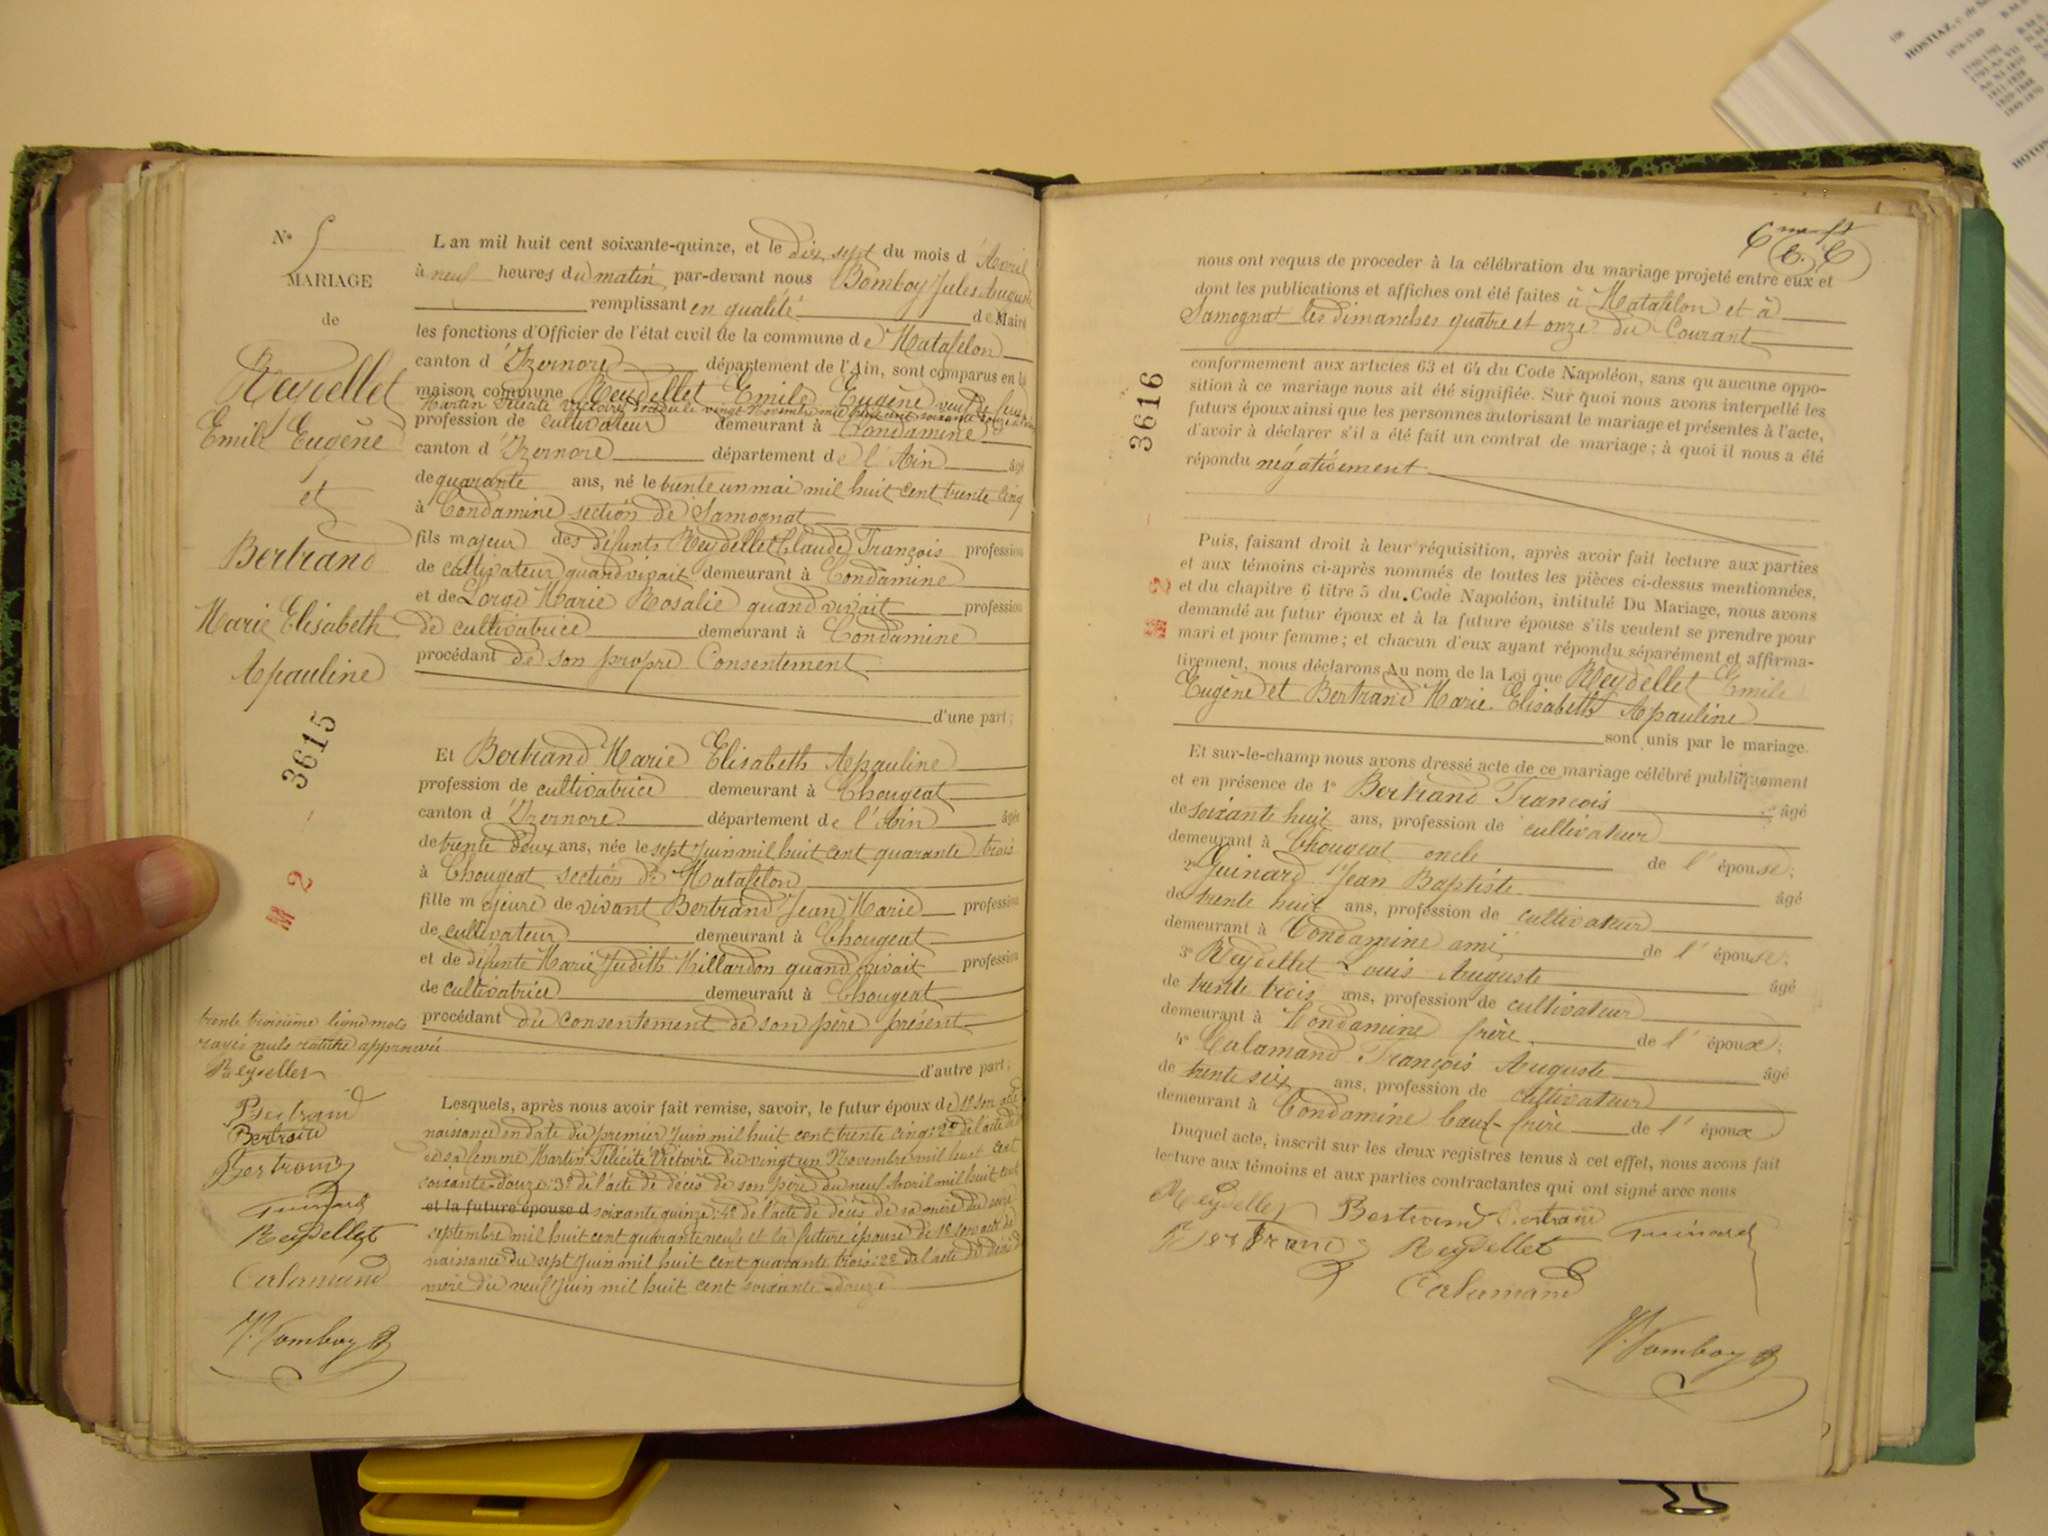 N° 5
MARIAGE
de
Reydellet
Emile Eugène
et
Bertrand
Marie Elisabeth
Apauline
3615
M 2 -
trente troisième ligne mots
rayés nuls rature approuvée
Reydellet
Bertrand
Bertrand
Bertrand
Guinard
Reydellet
Calamand
J. Bomboy
L an mil huit cent soixante-quinze, et le dix sept du mois d'Avril
à neuf heures du matin par-devant nous Bomboy Jules Auguste
remplissant en qualité de Maire
les fonctions d'Officier de l'état civil de la commune de Matafelon
canton d'Izernore département de l'Ain, sont comparus en la
maison commune Reydellet Emile Eugène veuf de feue
Martin Félicité Victoire décédée le vingt Novembre mil huit cent soixante douze
profession de cultivateur demeurant à Condamine
canton d'Izernore département de l'Ain âgé
de quarante ans, né le trente un mai mil huit cent trente cinq
à Condamine section de Samognat
fils majeur des défunts Reydellet Claude François profession
de cultivateur quand vivait demeurant à Condamine
et de Lorge Marie Rosalie quand vivait profession
de cultivatrice demeurant à Condamine
procédant de son propre Consentement
d'une part;
Et Bertrand Marie Elisabeth Apauline
profession de cultivatrice demeurant à Chougeat
canton d'Izernore département de l'Ain âgée
de trente deux ans, née le sept Juin mil huit cent quarante trois
à Chougeat section de Matafelon
fille majeure de vivant Bertrand Jean Marie profession
de cultivateur demeurant à Chougeat
et de défunte Marie Judith Millardon quand vivait profession
de cultivatrice demeurant à Chougeat
procédant du consentement de son père présent
d'autre part;
Lesquels, après nous avoir fait remise, savoir, le futur époux de 1° son acte
naissance en date du premier Juin mil huit cent trente cinq: 2° de l'acte de
de sa femme Martin Félicité Victoire du vingt un Novembre mil huit cent
soixante-douze: 3° de l'acte de décès de son père du neuf Avril mil huit cent
et la future épouse d soixante quinze: 4° de l'acte de décès de sa mère du
septembre mil huit cent quarante neuf et la future épouse de 1° son acte de
naissance du sept Juin mil huit cent quarante trois: 2° de l'acte de décès de
mère du neuf Juin mil huit cent soixante-douze
nous ont requis de proceder à la célébration du mariage projeté entre eux et
dont les publications et affiches ont été faites à Matafelon et à
Samognat les dimanches quatre et onze du Courant
conformement aux articles 63 et 64 du Code Napoléon, sans qu aucune oppo-
sition à ce mariage nous ait été signifiée. Sur quoi nous avons interpellé les
futurs époux ainsi que les personnes autorisant le mariage et présentes à l'acte,
d'avoir à déclarer s'il a été fait un contrat de mariage; à quoi il nous a été
répondu négativement
3616
M 2 -
Puis, faisant droit à leur réquisition, après avoir fait lecture aux parties
et aux témoins ci-après nommés de toutes les pièces ci-dessus mentionnées,
et du chapitre 6 titre 5 du Code Napoléon, intitulé Du Mariage, nous avons
demandé au futur époux et à la future épouse s'ils veulent se prendre pour
mari et pour femme; et chacun d'eux ayant répondu séparément et affirma-
tivement, nous déclarons Au nom de la Loi que Reydellet Emile
Eugène et Bertrand Marie Elisabeth Apauline
sont unis par le mariage.
Et sur-le-champ nous avons dressé acte de ce mariage célébré publiquement
et en présence de 1° Bertrand François âgé
de soixante huit ans, profession de cultivateur
demeurant à Chougeat oncle de l'épouse;
2° Guinard Jean Baptiste âgé
de trente huit ans, profession de cultivateur
demeurant à Condamine ami de l'épouse;
3° Reydellet Louis Auguste âgé
de trente trois ans, profession de cultivateur
demeurant à Condamine frère de l'époux;
4° Calamand François Auguste âgé
de trente six ans, profession de cultivateur
demeurant à Condamine beau-frère de l'époux
Duquel acte, inscrit sur les deux registres tenus à cet effet, nous avons fait
lecture aux témoins et aux parties contractantes qui ont signé avec nous
Reydellet Bertrand Bertrand Guinard
Bertrand Reydellet
Calamand
J. Bomboy
HOSTIAZ, c. de